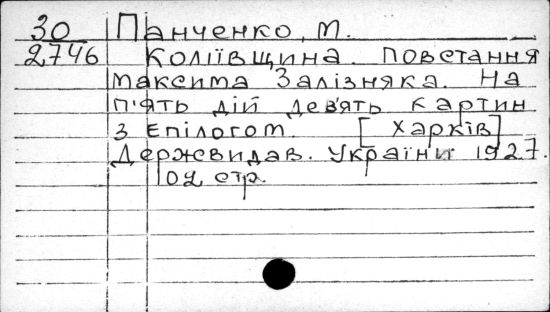 30 Панченко, М.
2746 Коліївщина. Повстання
Максима Залізняка. На
п'ять дій дев'ять картин
з епілогом. [Харків]
Держвидав. України 1927.
102 стр.